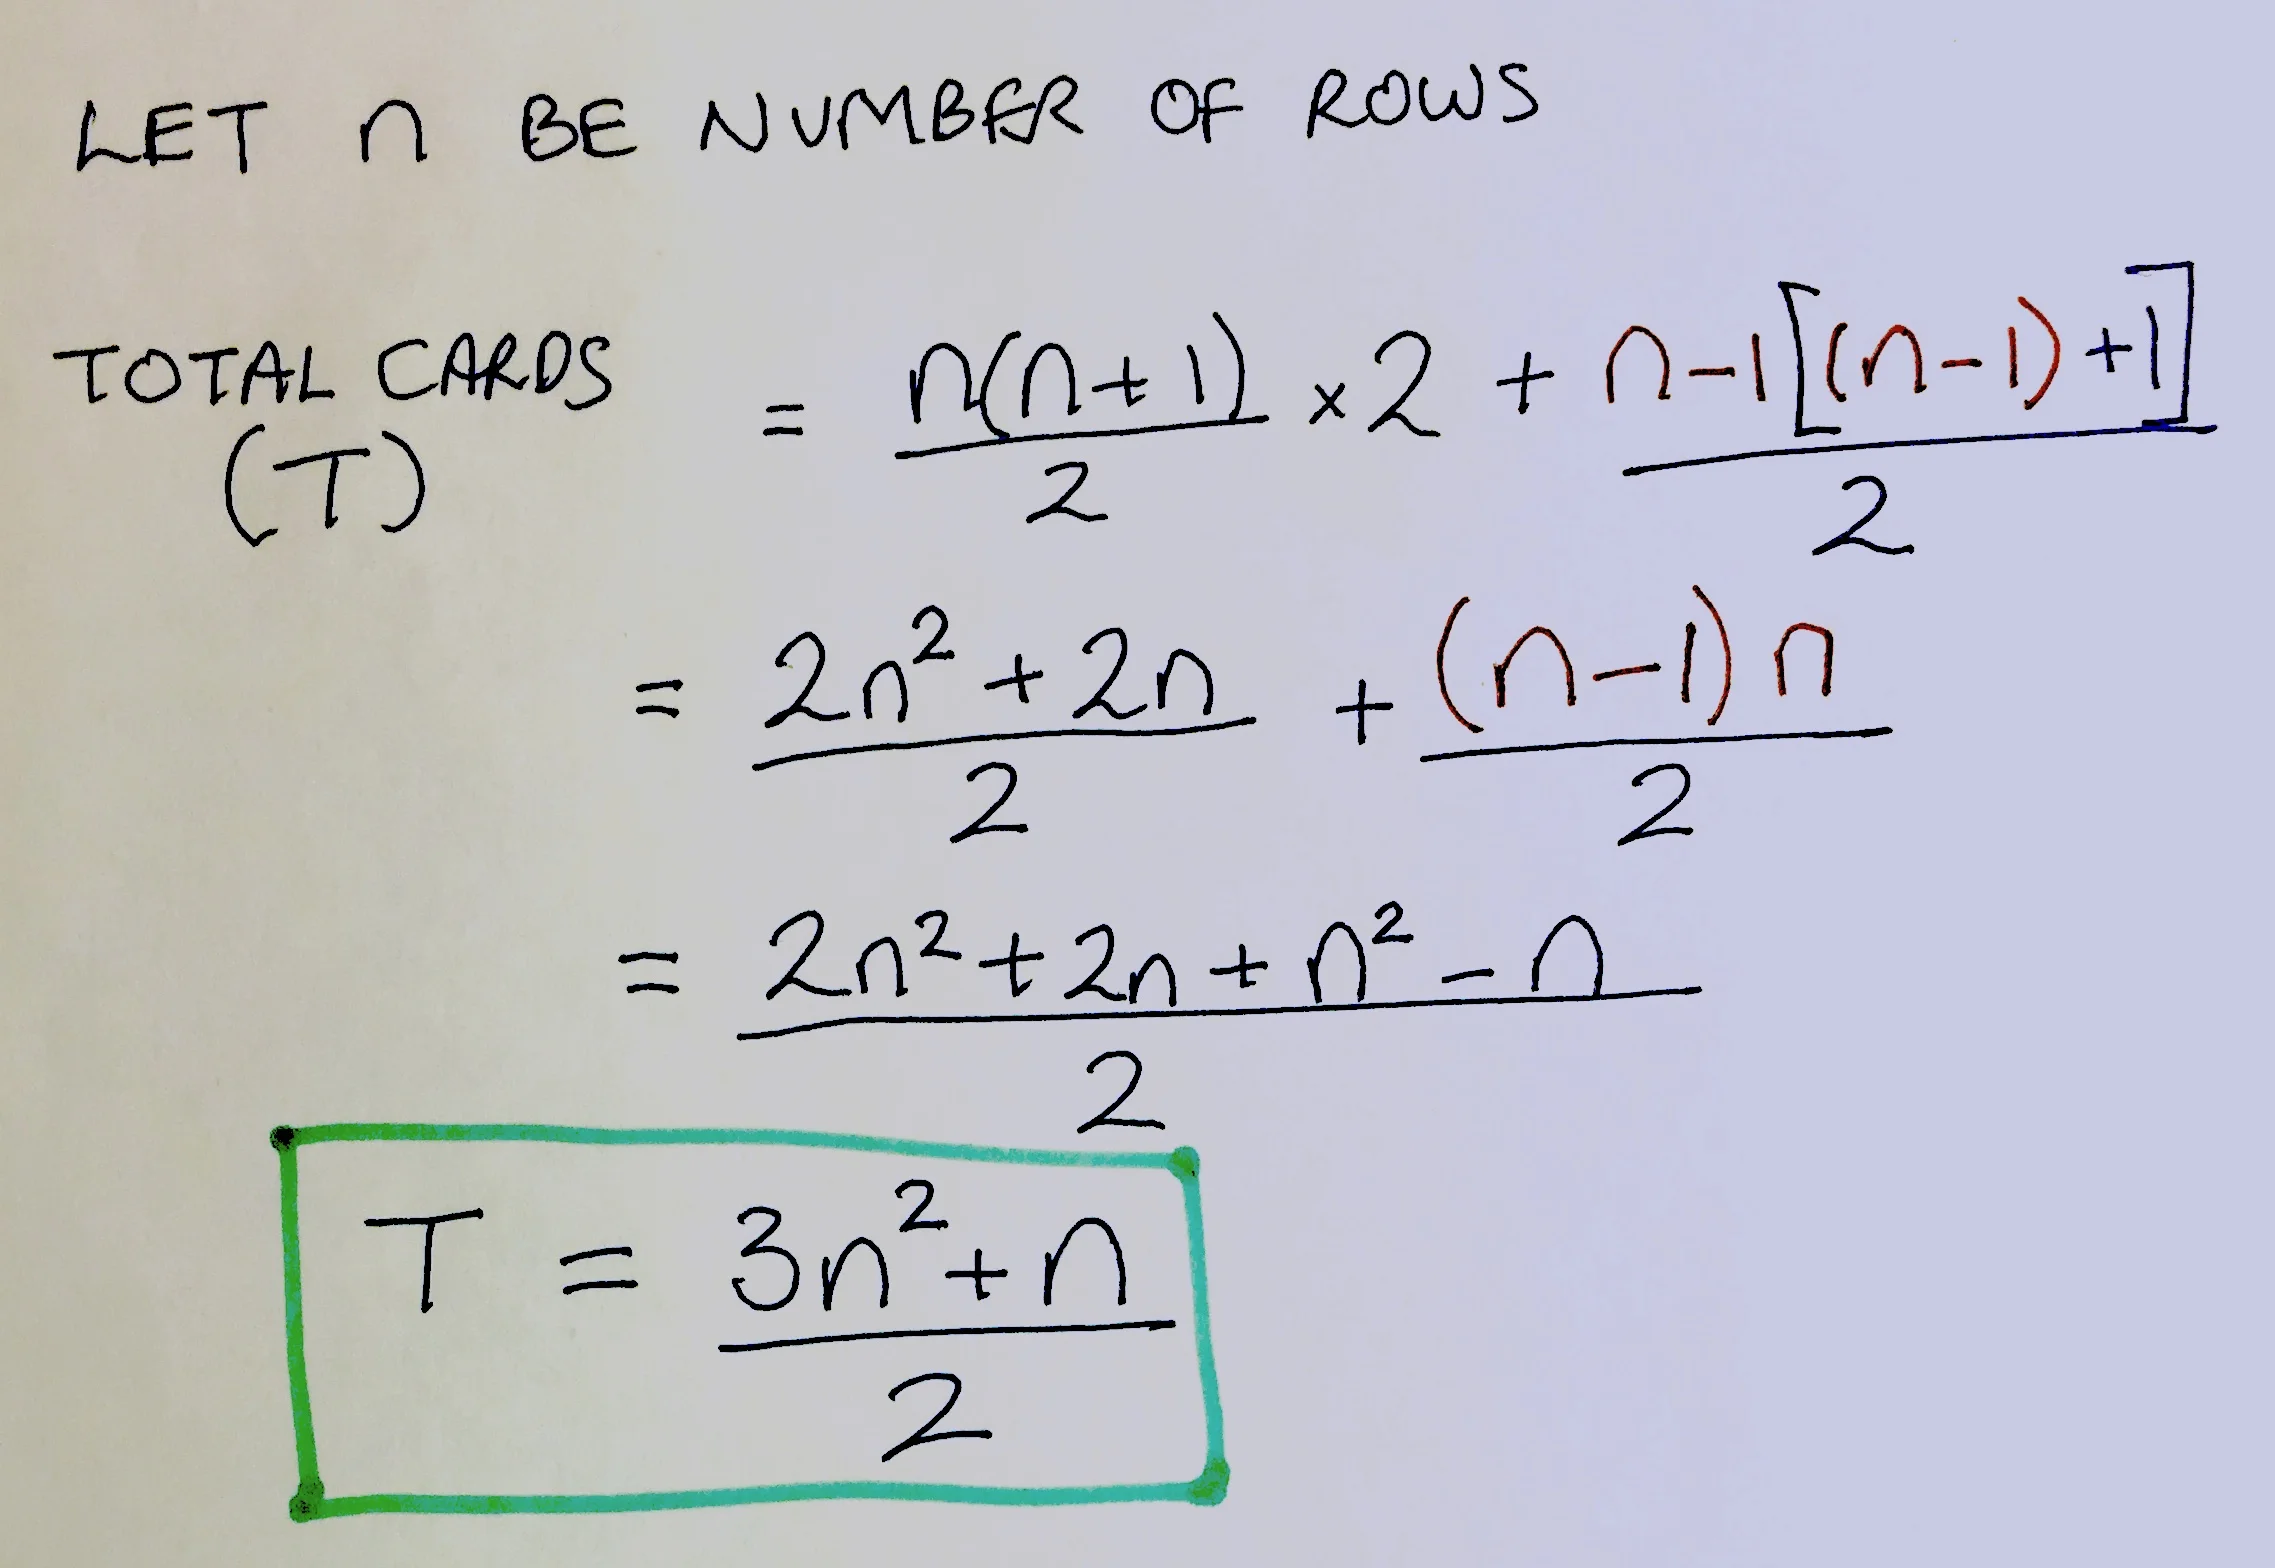 LET n BE NUMBER OF ROWS
TOTAL CARDS (T) = n(n+1)/2 × 2 + n-1[(n-1)+1]/2
= 2n²+2n/2 + (n-1)n/2
= 2n²+2n+n²-n/2
T = 3n²+n/2